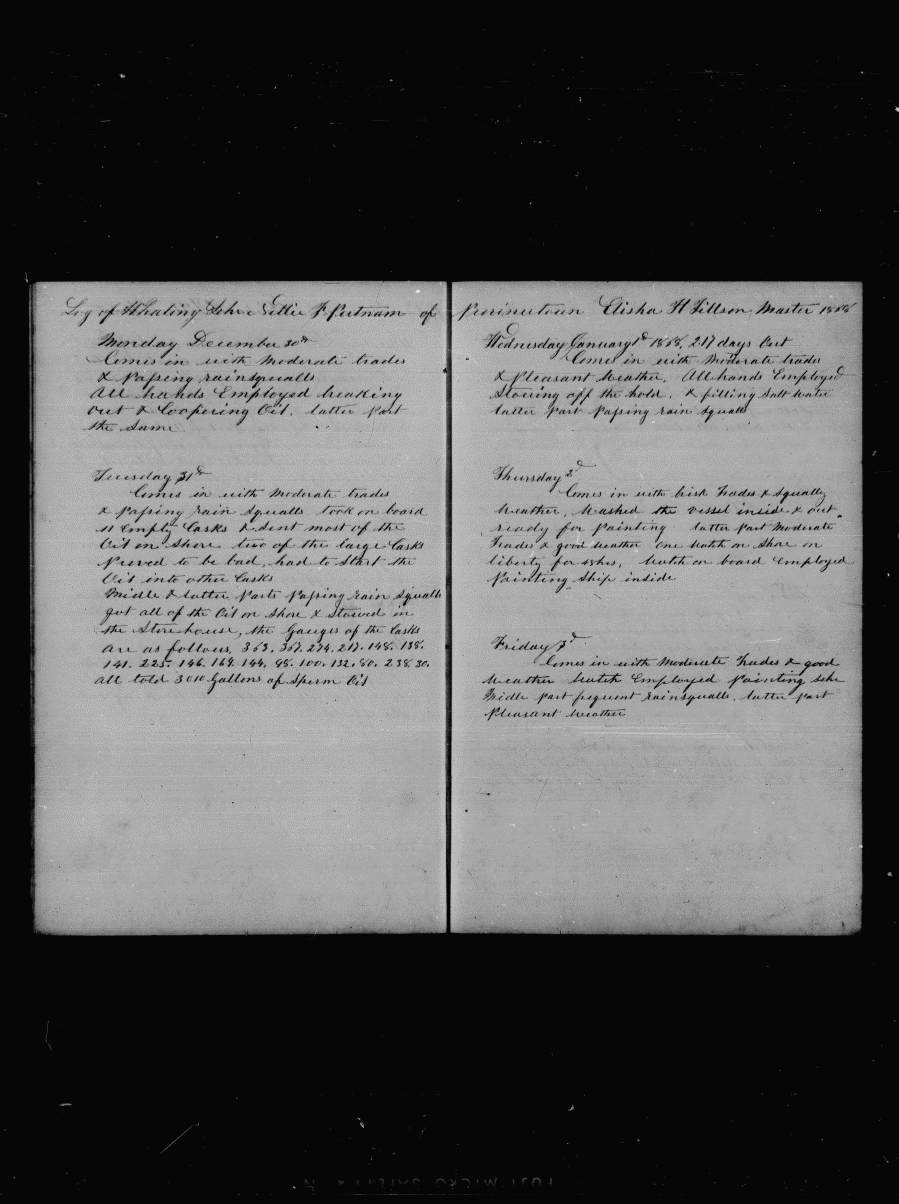 Log of Whaling Schr Nellie F Putnam of Provincetown Elisha H Tillson Master 1868
Monday December 30th
Comes in with moderate trades
& Passing rainsqualls
All hands Employed breaking
out & Coopering Oil. latter Part
the same
Tuesday 31st
Comes in with moderate trades
& Passing rain squalls took on board
11 Empty Casks & sent most of the
Oil on shore two of the large Casks
Proved to be bad, had to start the
Oil into other Casks
Midle & latter Parts Passing rain squalls
got all of the Oil on shore & Stowed in
the Storehouse, the Gauges of the Casks
are as follows. 363. 367. 274. 217. 148. 138.
141. 225. 146. 169. 144. 98. 100. 132. 80. 238. 30.
all told 3010 Gallons of Sperm Oil
Wednesday January 1st 1868, 217 days Out
Comes in with moderate trades
& Pleasant Weather. All hands Employed
Stowing off the hold. & filling Salt Water
latter Part Passing rain squalls
Thursday 2d
Comes in with brisk Trades & Squally
Weather, Washed the vessel inside & out
ready for Painting latter Part Moderate
Trades & good Weather one Watch on Shore on
liberty for 48hrs, Watch on board Employed
Painting Ship inside
Friday 3d
Comes in with Moderate Trades & good
Weather Watch Employed Painting Schr
Midle Part frequent rainsqualls. latter Part
Pleasant Weather